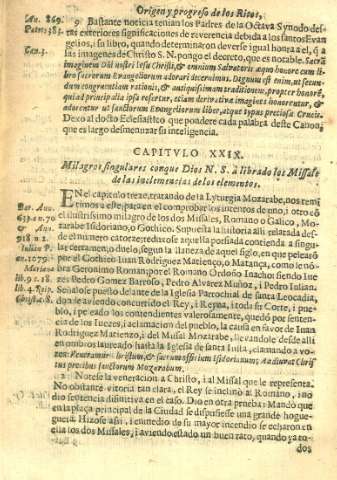 Origen, y progreso de los Ritos,
An. 869.
Patres 383.
Can. 3.
9 Bastante noticia tenian los Padres de la Octava Synodo de
exteriores significaciones de reverencia debida a los santos Evan
gelios, i su libro, quando determinaron deverse igual honra a el, q̃ a
las imagenes de Christo S. N. pongo el decreto, que es notable. Sacra
imaginem Dñi nostri Iesu Christi, & omnium salvatoris æquo honore cum li-
bro sacrorum Evangeliorum adorari decernimus. Dignum est enim, ut secun-
dum congruentiam rationis, & antiquissimam traditionem, propter honorẽ,
quia ad principalia ipsa refertur, etiam derivativa imagines honorentur, &
adorentur ut sanctorum Evangeliorum liber, atque typus pretiosæ Crucis.
Dexo al docto Eclesiastico que pondere cada palabra deste Canon,
que es largo desmenuzar su inteligencia.
CAPITVLO XXIX.
Milagros singulares con que Dios N. S. a librado los Missales
de las inclemencias de los elementos.
EN el capitulo treze, tratando de la Lyturgia Mozarabe, nos remi
timos a este, para en el comprobar los intentos de uno, i otro cõ
el ilustrissimo milagro de los dos Missales, Romano o Galico, Mo-
zarabe Isidoriano, o Gothico. Supuesta la historia alli relatada des-
de el numero catorze, reduxose aquella porfiada contienda a singu-
lar certamen, o duelo, segun la llaneza de aquel siglo, en que pelearõ
por el Gothico Iuan Rodriguez Matienço, o Matança, como le nõ-
bra Geronimo Roman; por el Romano Ordoño
Pedro Gomez Barroso, Pedro Alvarez Muñoz, i Pedro Iulian.
Señalose puesto delante de la Iglesia Parrochial de santa Leocadia,
donde se aviendo concurrido el Rey, i Reyna, i toda su Corte, i pue-
blo, i peleado los contendientes valerosamente, quedò por senten-
cia de los Iuezes, i aclamacion del pueblo, la causa en favor de Iuan
Rodriguez Matienzo, i del Missal Mozarabe, llevandole desde alli
en ombros laureado hasta la Iglesia de santa Iusta, clamando a vo-
2 Notese la veneracion a Christo, i al Missal que le representa.
No obstante vitoria tan clara, el Rey se inclinò al Romano, i no
diò sentencia difinitiva en el caso. Diò en otra prueba: Mandò que
en la plaça principal de la Ciudad se dispusiesse una grande hogue-
guera. Hizose assi, i en medio de su mayor incendio se echaron en
ella los dos Missales, i aviendo estado un buen rato, quando ya to-
dos